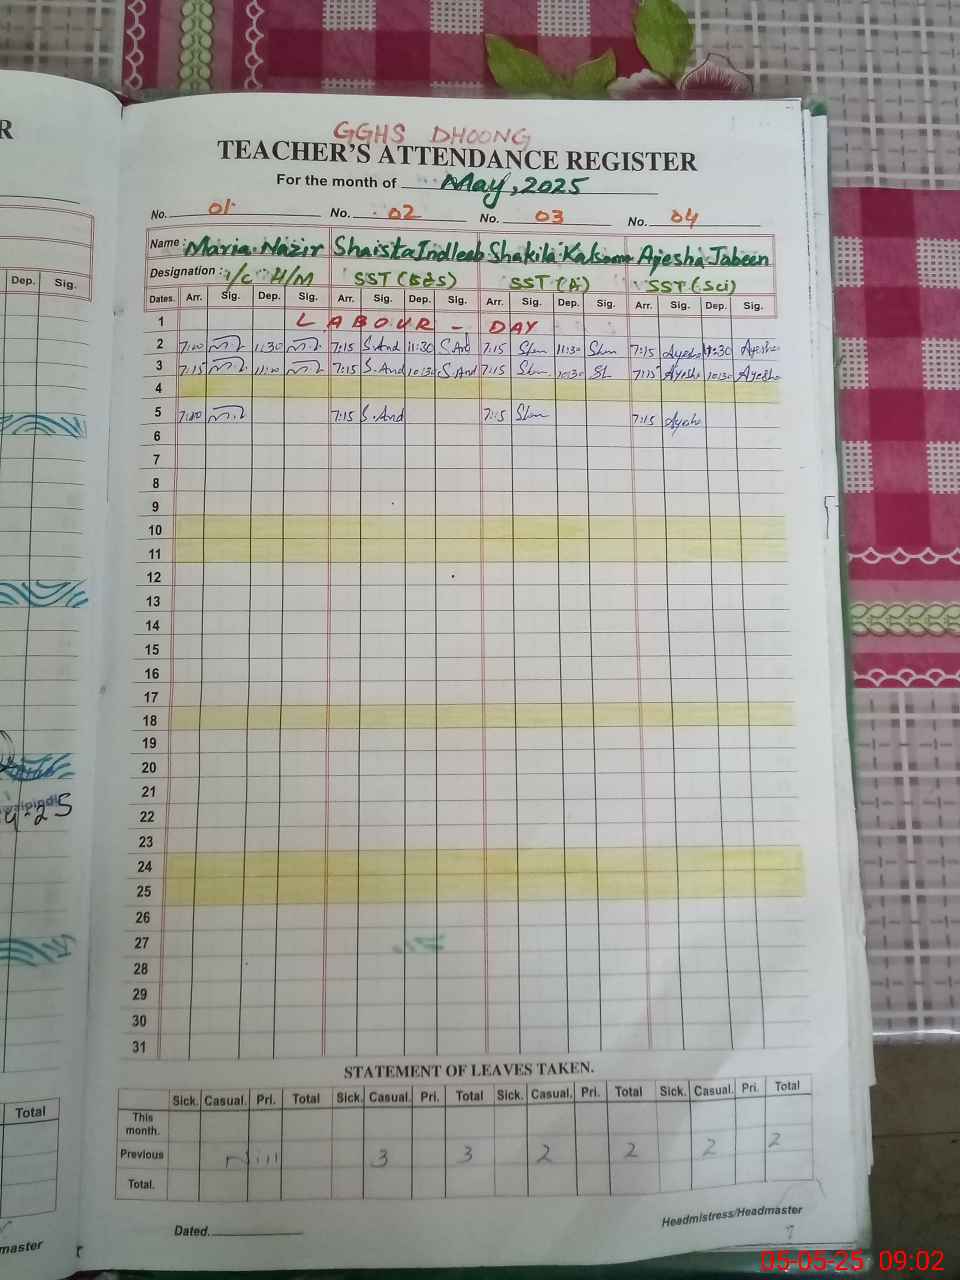 R
GGHS DHOONG
TEACHER'S ATTENDANCE REGISTER
For the month of May, 2025
No. 01 No. 02 No. 03 No. 04
Name: Maria Nazir Shaista Indleeb Shakila Kalsoom Ayesha Jabeen
Designation: I/C H/M SST (Bio) SST (A) SST (Sci)
Dep. Sig.
Dates. Arr. Sig. Dep. Sig. Arr. Sig. Dep. Sig. Arr. Sig. Dep. Sig. Arr. Sig. Dep. Sig.
1 LABOUR - DAY
2 7:00 11:30 7:15 S.And 11:30 S.And 7:15 11:30 7:15 Ayesha 11:30 Ayesha
3 7:15 11:00 7:15 S.And 10:30 S.And 7:15 10:30 7:15 Ayesha 10:30 Ayesha
4
5 7:00 7:15 S.And 7:15 7:15 Ayesha
6
7
8
9
10
11
12
13
14
15
16
17
18
19
20
21
22
23
24
25
26
27
28
29
30
31
STATEMENT OF LEAVES TAKEN.
Total
Sick. Casual. Pri. Total Sick. Casual. Pri. Total Sick. Casual. Pri. Total Sick. Casual. Pri. Total
This month.
Previous Nill 3 3 2 2 2 2
Total.
Dated. Headmistress/Headmaster
master
05-05-25 09:02